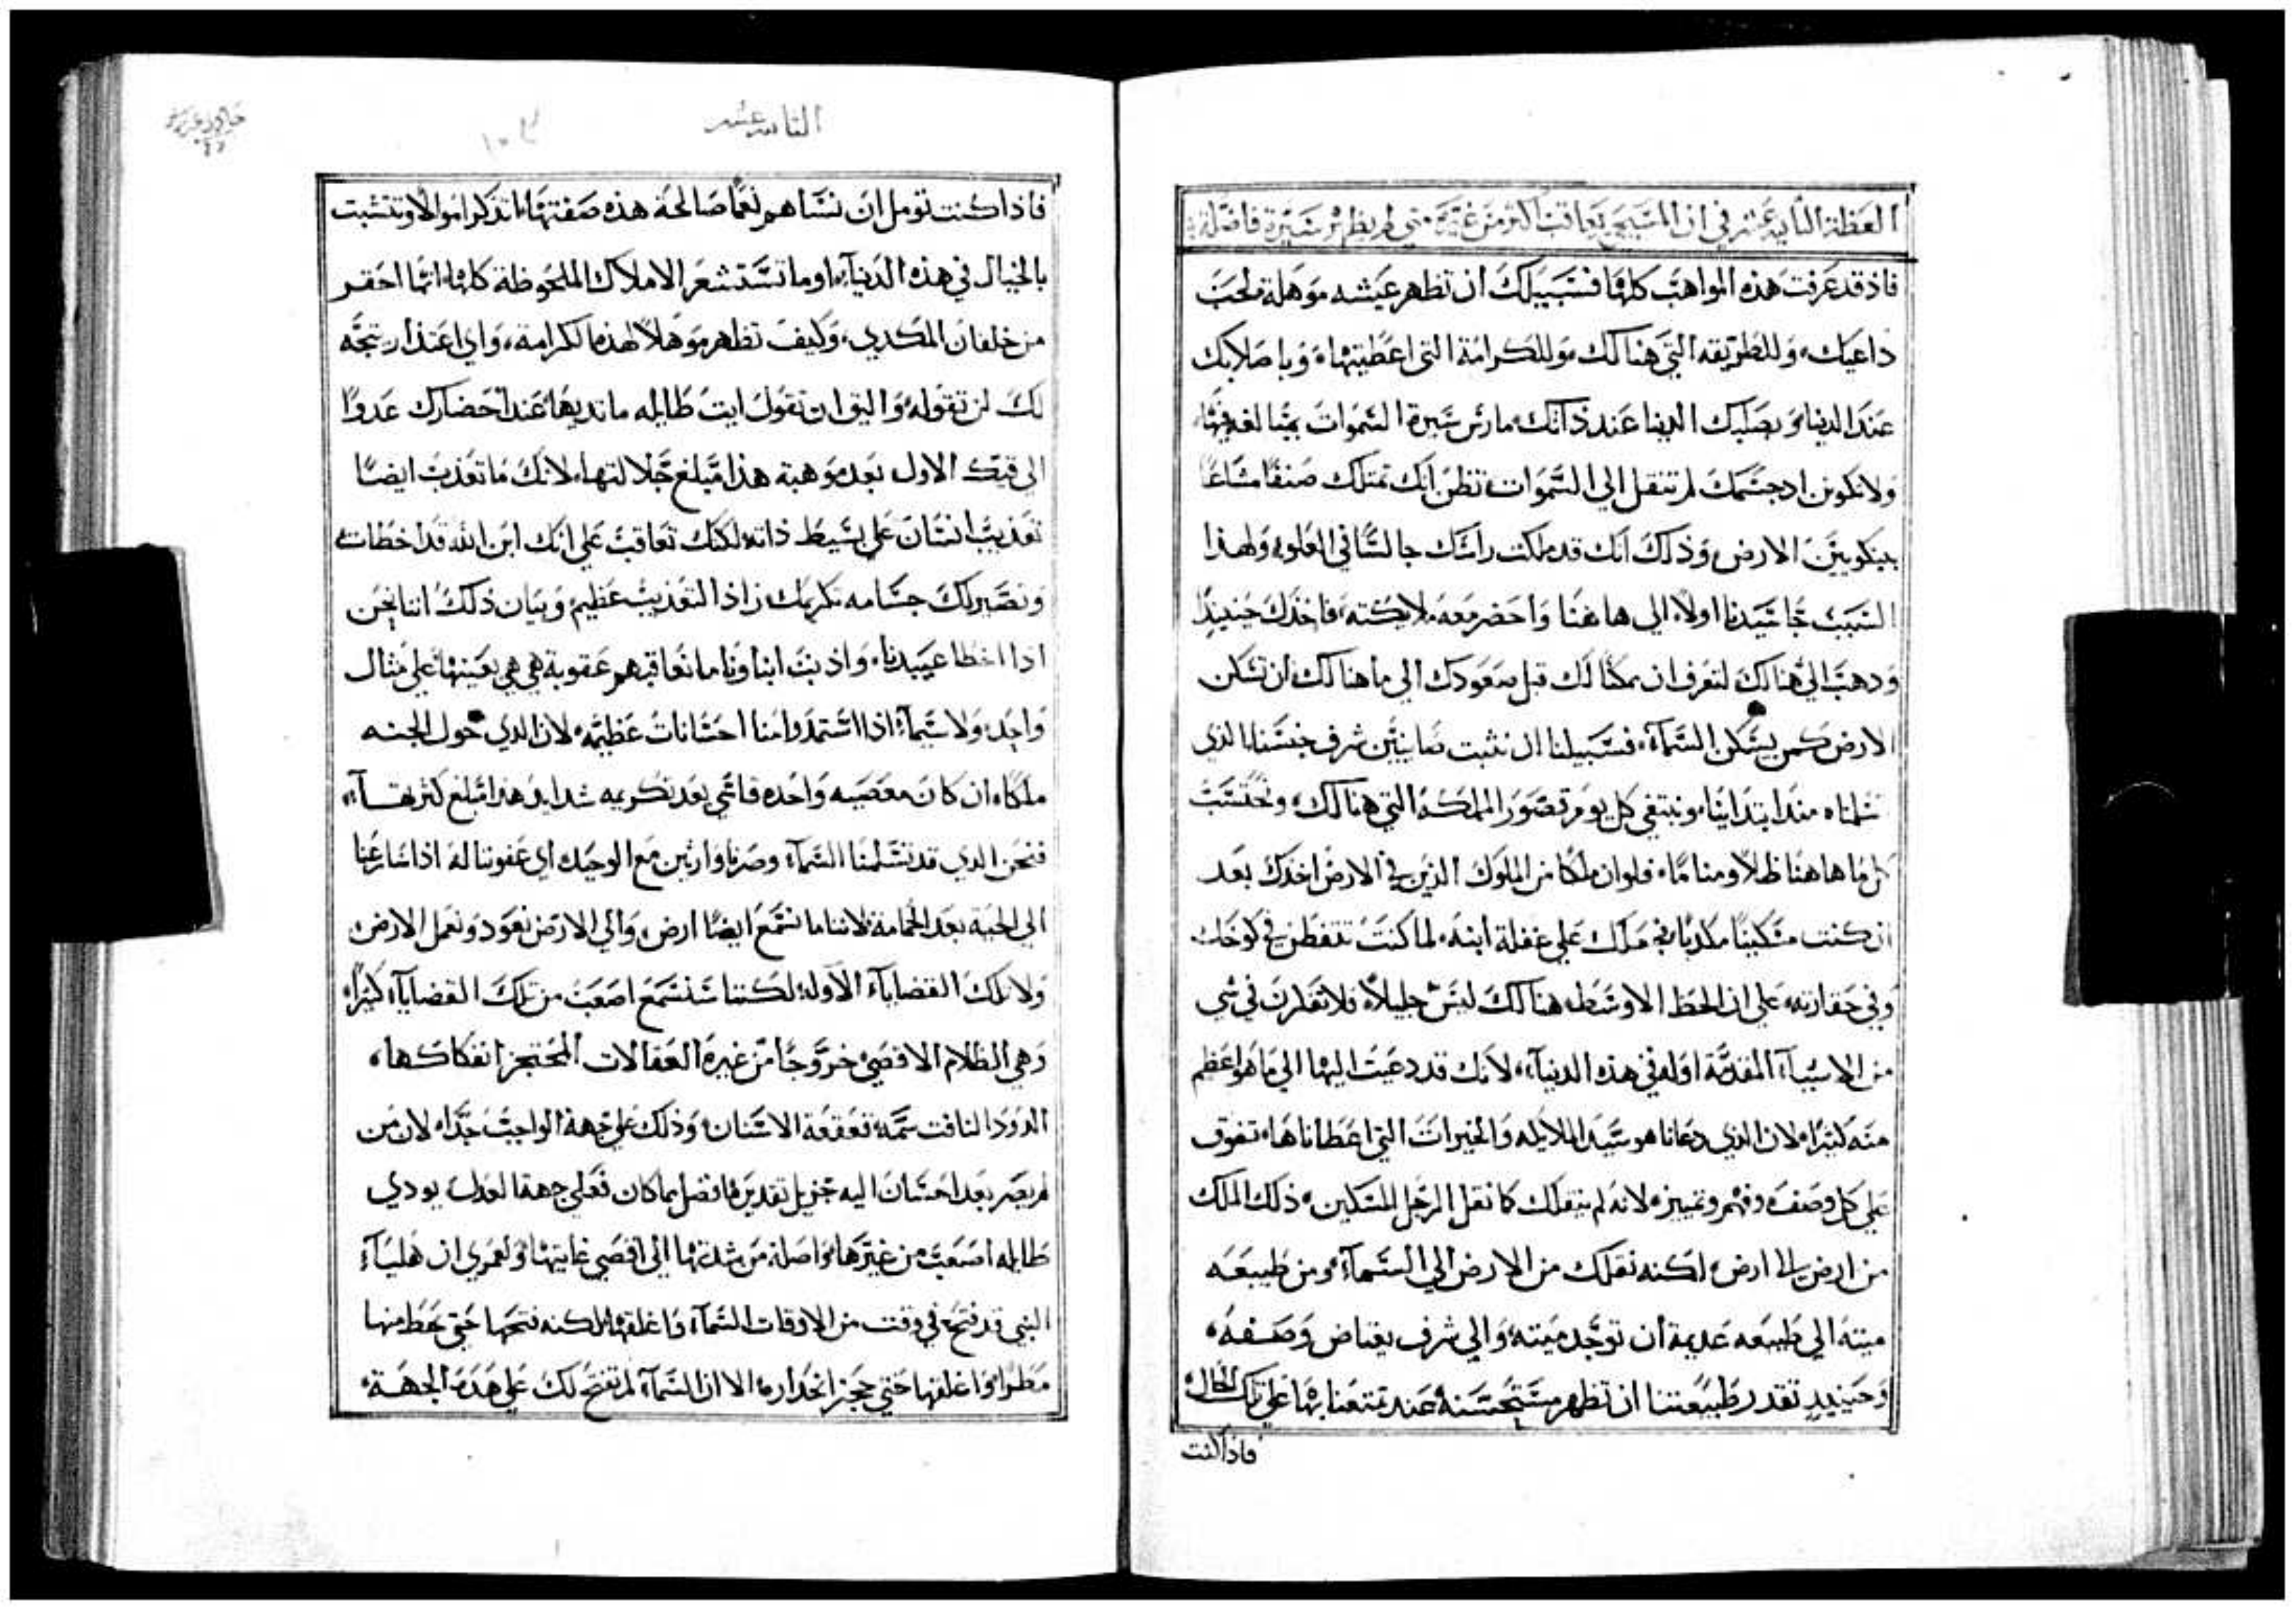 العظة الثانية عشر في ان المسيحي يعاقب اكثر من غيره متي لم يظهر سيرة فاضلة
فاذ قد عرفت هذه المواهب كلها فسبيلك ان تظهر عيشه موهلة لحب
داعيك، وللطريقه التي هنالك وللكرامة التي اعطيتها، وباصلابك
عند الدنيا وبصلبك الدنيا عند ذاتك مارس سيرة السموات
ولا تكونن اذ جسمك لم تنتقل الي السموات تظن انك تمتلك صنفا مشاعا
الارض وذلك انك قد ملكت راسك جالسا في العلو، ولهذا
السبب جا سيدنا اولا الي هاهنا واحضر معه ملايكته، فاخذك حينيذ
ودهب الي هنالك لتعرف ان ممكنا لك قبل صعودك الي ما هنالك ان تسكن
الارض كمن يسكن السمآء، فسبيلنا ان نثبت شرف جنسنا الذي
تسلمناه منذ ابتداينا، ونبتغي كل يوم قصور المملكة التي هنالك، ونحتسب
كل ما هاهنا ظلا ومناما، فلو ان ملكا من الملوك الذين في الارض اخدك بعد
ان كنت مسكينا مكديا علي غفلة ابنه، لما كنت تتفطن في كوخك
وفي حقارته، علي ان الحظ الاوسط هنالك ليس جليلا، فلا تفكرن في شي
من الاشيآء المقدمة اوله في هذه الدنيآء، لانك قد دعيت اليها الي ما هو اعظم
منه كثيرا، لان الذي دعانا هو سيد الملايكه والخيرات التي اعطاناها، تفوق
علي كل وصف، وفهم وتمييز، لانه لم ينقلك كما نقل الرجل المسكين، ذلك الملك
من ارض الي ارض، لكنه نقلك من الارض الي السمآء، ومن طبيعه
ميته الي طبيعه عديمة ان توجد ميته، والي شرف يعتاض وصفه،
وحينيذ تقدر طبيعتنا ان تظهر مستحسنه عند تمتعنا بها علي تلك الحال،
فاذا كنت
الثانيه عشر
فاذا كنت تومل ان نعما صالحة هذه صفتها، اتدكر اموالا وتتشبت
بالخيال في هذه الدنيآء، اوما تستشعر الاملاك الملحوظة كلها، انها احقر
من خلقان المكدي، وكيف تظهر موهلا لهذه الكرامة، واي اعتذار يتجه
لك لن تقوله، والبق ان تقول ايت طايله ما تديها عند احضارك عدوا
الي قيك الاول بعد موهبة هذا مبلغ جلالتها، لانك ما تعذب ايضا
تعذيب انسان علي بسيط ذاته، لكنك تعاقب علي انك ابن الله قد اخطات،
وتصير لك جسامه تكريمك زاد التعذيب عظيم، وبيان ذلك اننا نحن
اذا اخطا عبيدنا، واذ نبت ابناونا ما نعاقبهم عقوبة هي هي بعينها، علي مثال
واحد، ولا سيمآء اذا استمدوا منا احسانات عظيمه، لان الذي خول الجنه
ملكا، ان كان معصيه واحده قاسي بعد تكريمه شدايد هذا مبلغ كثرتهآ،
فنحن الذي قد تسلمنا السمآء وصرنا وارثين مع الوحيد اي عفو بتناله اذا سارعنا
الي الحية بعد الحمامة، لاننا ما نسمع ايضا ارض، والي الارض نعود، ونعمل الارض
ولا تلك القضايآ الاوله، لكننا سنسمع اصعب من تلك القضايآء كثيرا،
وهي الظلام الاقصي خروجا من غيره العقالات المحتجز انفكاكها،
الدود النافت سمه، تقعقعة الاسنان، وذلك علي جهة الواجب جدا، لان من
لم يصر بعد احسان اليه جزيل تقديره افضل مما كان فعلي جهة العدل يودي
طايله اصعب من غيرها، واصلة من شدتها الي اقصي غايتها، ولعمري ان هليآء
النبي قد فتح في وقت من الاوقات السمآء واغلقها، لكنه فتحها حتي يحط منها
مطرا، واغلقها حتي حجز انحداره، الا ان السمآء لم تفتح لك علي هذه الجهة،